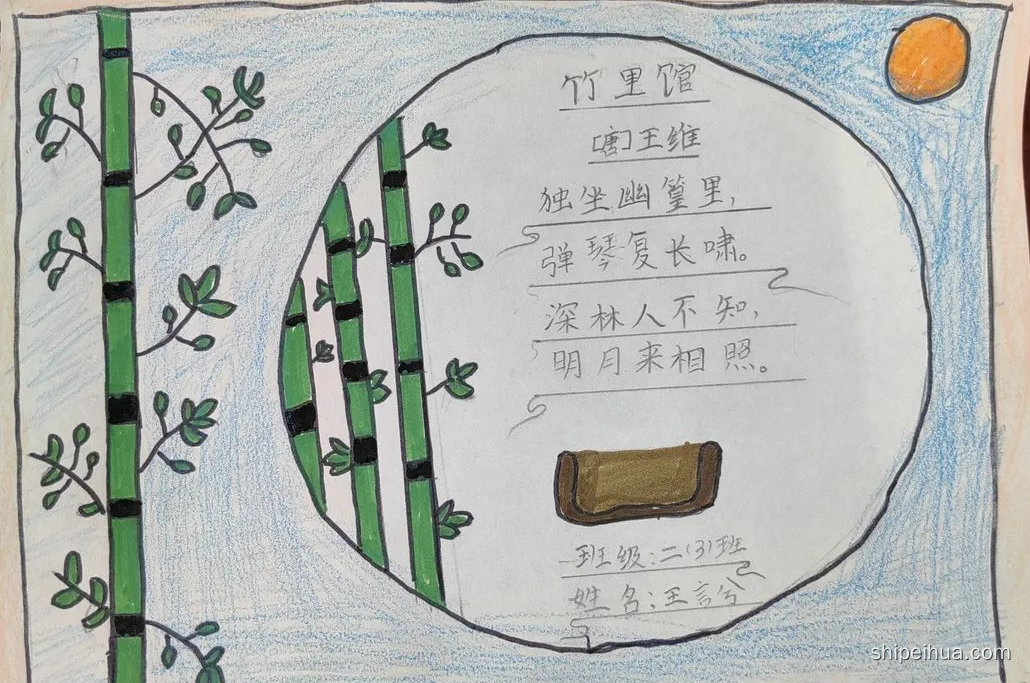 竹里馆
[唐]王维
独坐幽篁里，
弹琴复长啸。
深林人不知，
明月来相照。
班级：二(3)班
姓名：王言兮
shipeihua.com